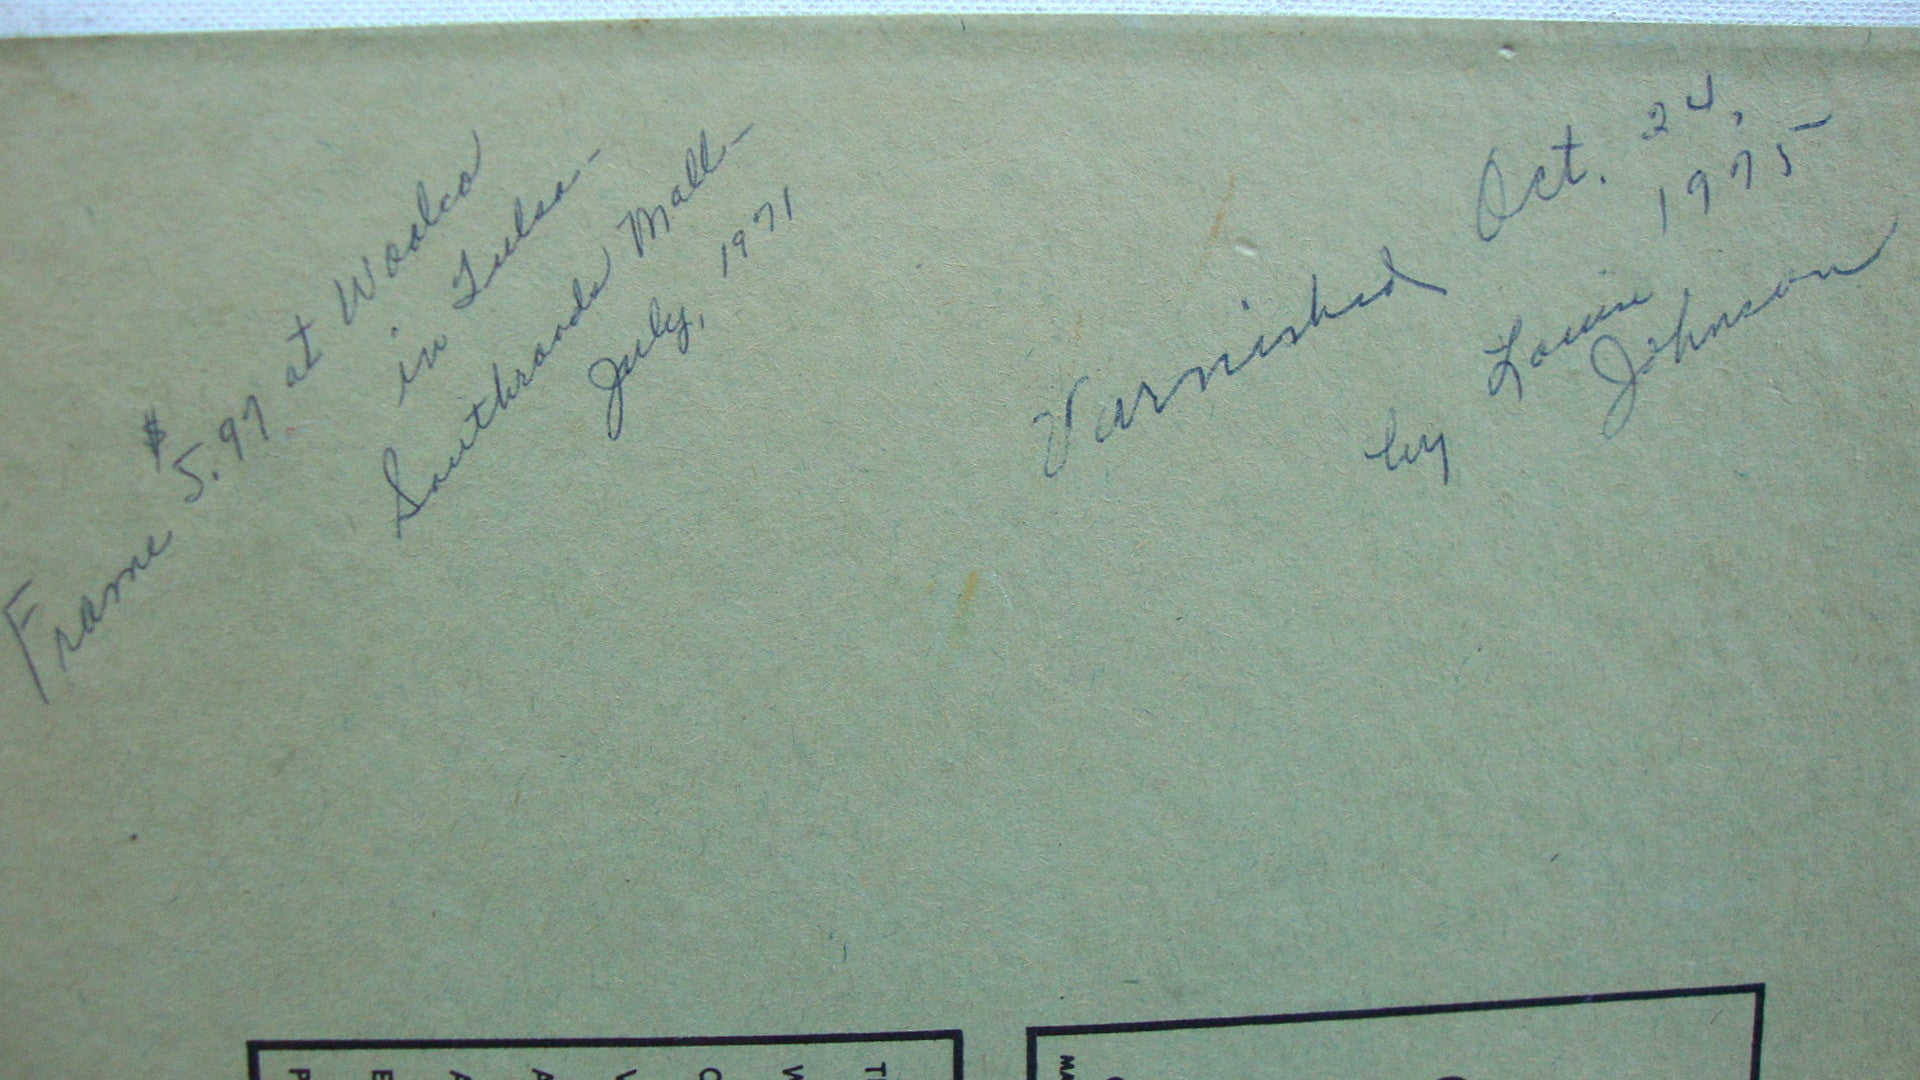 Frame $5.97 at Woolco
in Tulsa -
Southroads Mall -
July, 1971
Varnished Oct. 24,
1975
by Louise
Johnson